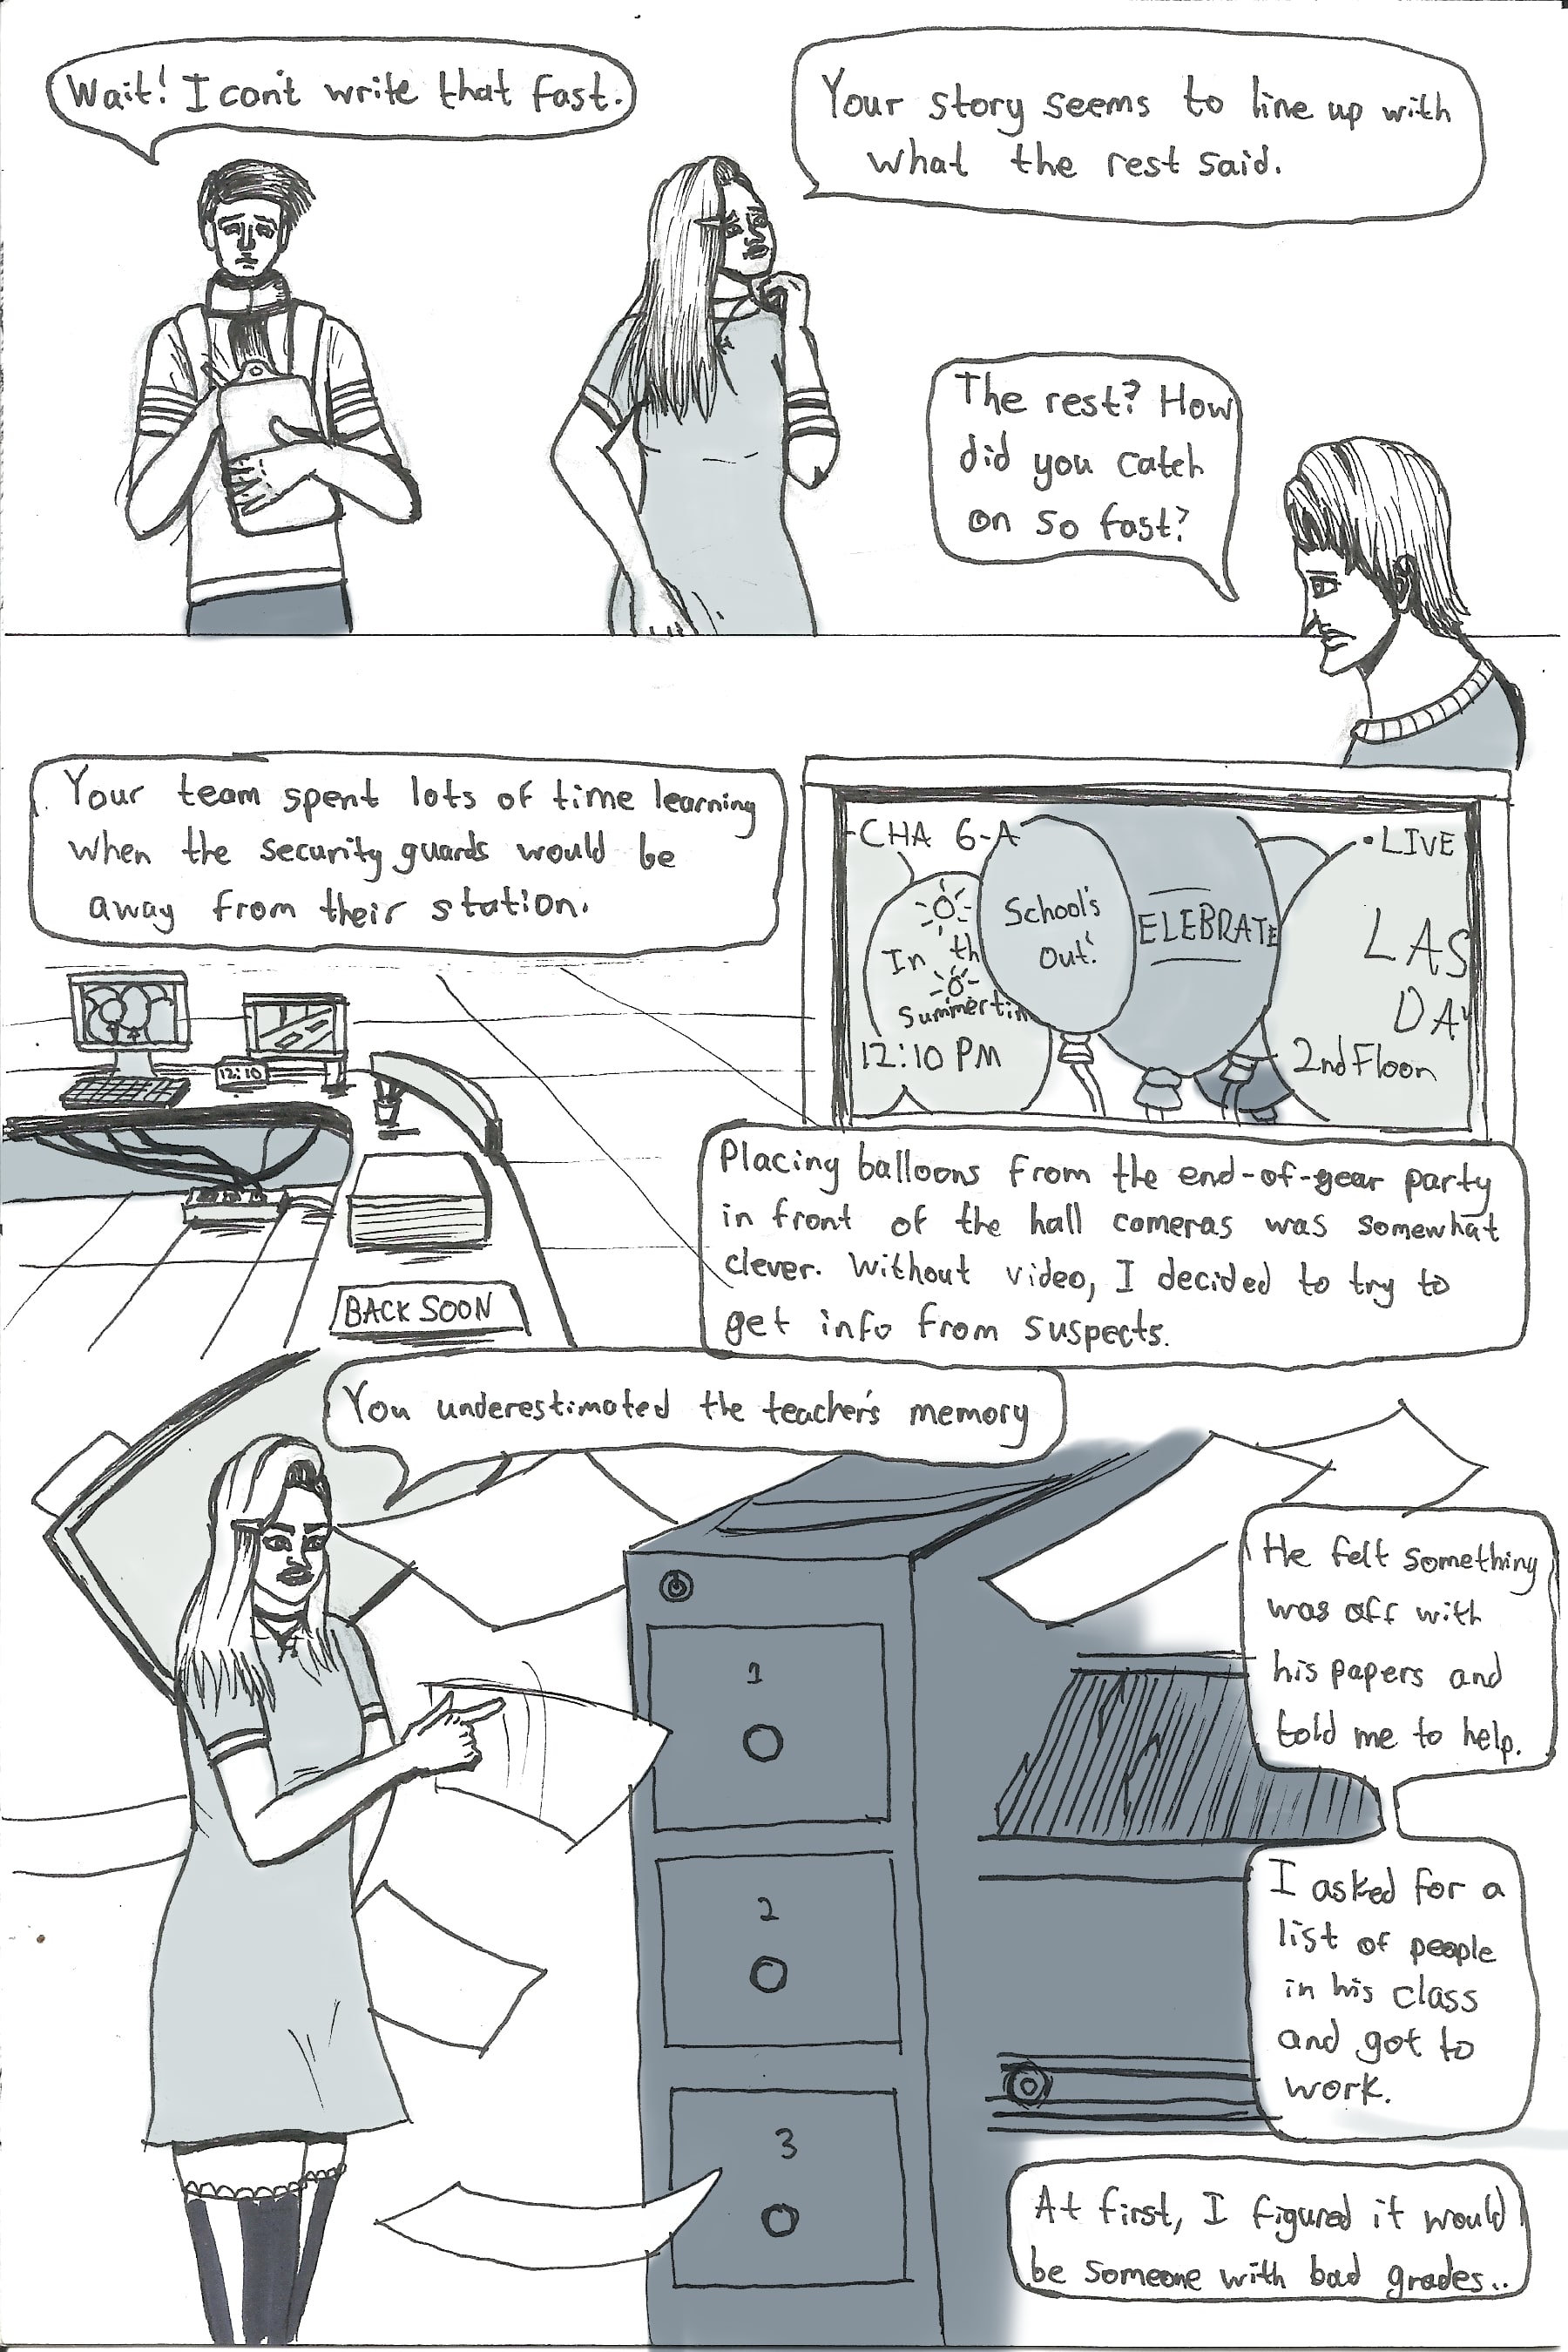 Wait! I can't write that fast.
Your story seems to line up with
what the rest said.
The rest? How
did you catch
on so fast?
Your team spent lots of time learning
when the security guards would be
away from their station.
CHA 6-A
• LIVE
In th
summertim
School's
Out!
ELEBRATE
LAS
DAY
12:10 PM
2nd Floor
12:10
BACK SOON
Placing balloons from the end-of-year party
in front of the hall cameras was somewhat
clever. Without video, I decided to try to
get info from suspects.
You underestimated the teacher's memory
He felt something
was off with
his papers and
told me to help.
I asked for a
list of people
in his class
and got to
work.
1
2
3
At first, I figured it would
be someone with bad grades..